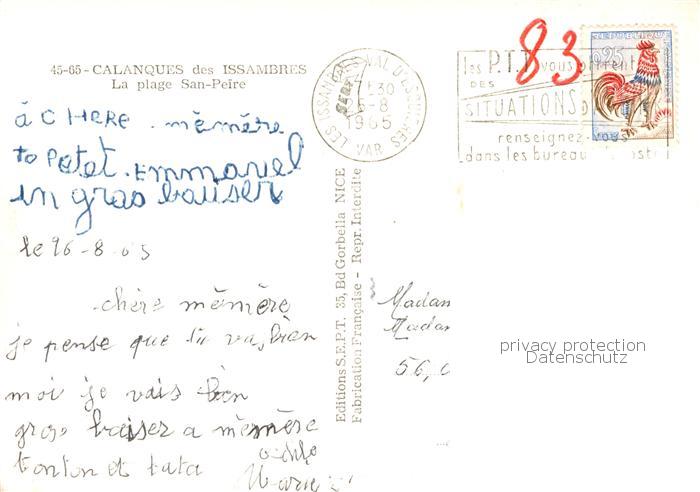 45-65 - CALANQUES des ISSAMBRES
La plage San-Peïre
à CHERE . mèmère
to Petet . EMMANUEL
un gros baiser
le 26-8-65
chère mèmère
je pense que tu vas bien
moi je vais bien
gros baiser a mèmère
tonton et tata
Marie
Editions S.E.P.T. 35, Bd Gorbella NICE
Fabrication Française - Repr. Interdite
LES ISSAMBRES VAL D'ESQUIERES
17 30
25-8
1965
VAR
83
les P.T.T vous offrent
DES
SITUATIONS
renseignez-vous
dans les bureaux de poste
0,25
Madam
Madam
56,
privacy protection
Datenschutz